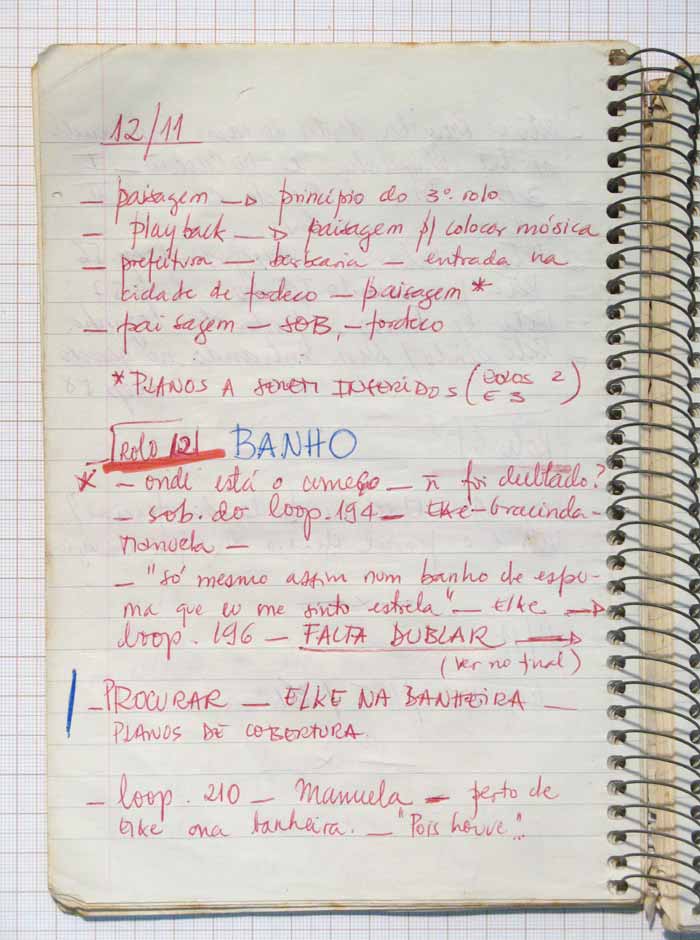 12/11
– paisagem –▷ princípio do 3º. rolo
– playback –▷ paisagem p/ colocar música
– prefeitura – barbearia – entrada na
cidade de fordeco – paisagem *
– paisagem – SOB. – fordeco
* PLANOS A SEREM INSERIDOS (ROLOS 2
E 3)
ROLO 12 BANHO
* – onde está o começo – ñ foi dublado?
– sob. do loop. 194 – Elke – Gracinda –
Manuela –
– "só mesmo assim num banho de espu-
ma que eu me sinto estrela" – Elke –▷
loop. 196 – FALTA DUBLAR –▷
(ver no final)
– PROCURAR – ELKE NA BANHEIRA –
PLANOS DE COBERTURA
– loop. 210 – Manuela – perto de
Elke na banheira. – "Pois houve".